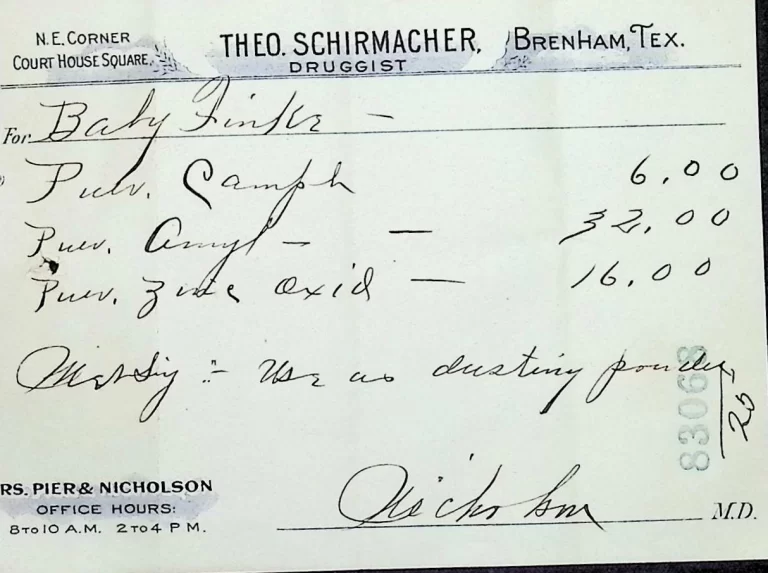 N.E. CORNER
COURT HOUSE SQUARE.
THEO. SCHIRMACHER,
DRUGGIST
BRENHAM, TEX.
For Baby Finke —
Pulv. Camph 6.00
Pulv. Amyl — — 32.00
Pulv. Zinc Oxid — 16.00
M et Sig :- Use as dusting powder
83068
25
RS. PIER & NICHOLSON
OFFICE HOURS:
8 TO 10 A.M. 2 TO 4 P M.
Nicholson M.D.